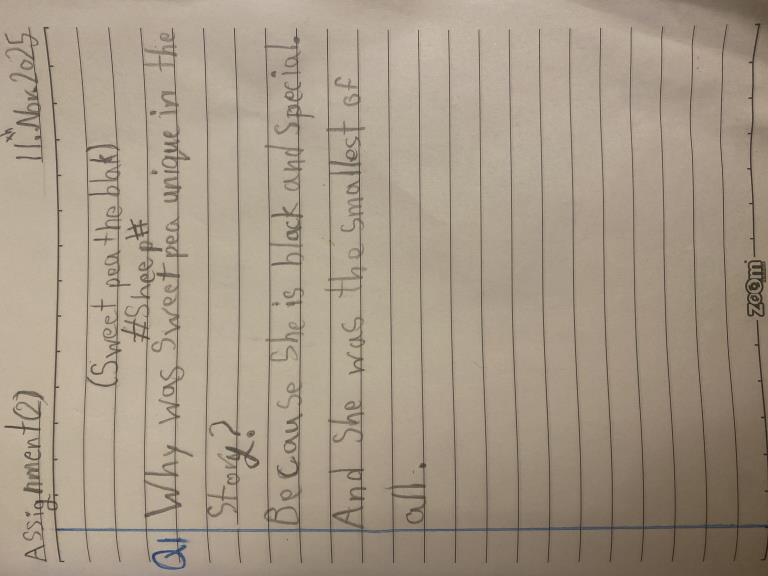 Assignment(2) 11.th Nov.2025
(Sweet pea the blak)
#Sheep#
Q1 Why was Sweet pea unique in the
Story?
Because She is black and Special.
And She was the Smallest of
all.
zoom